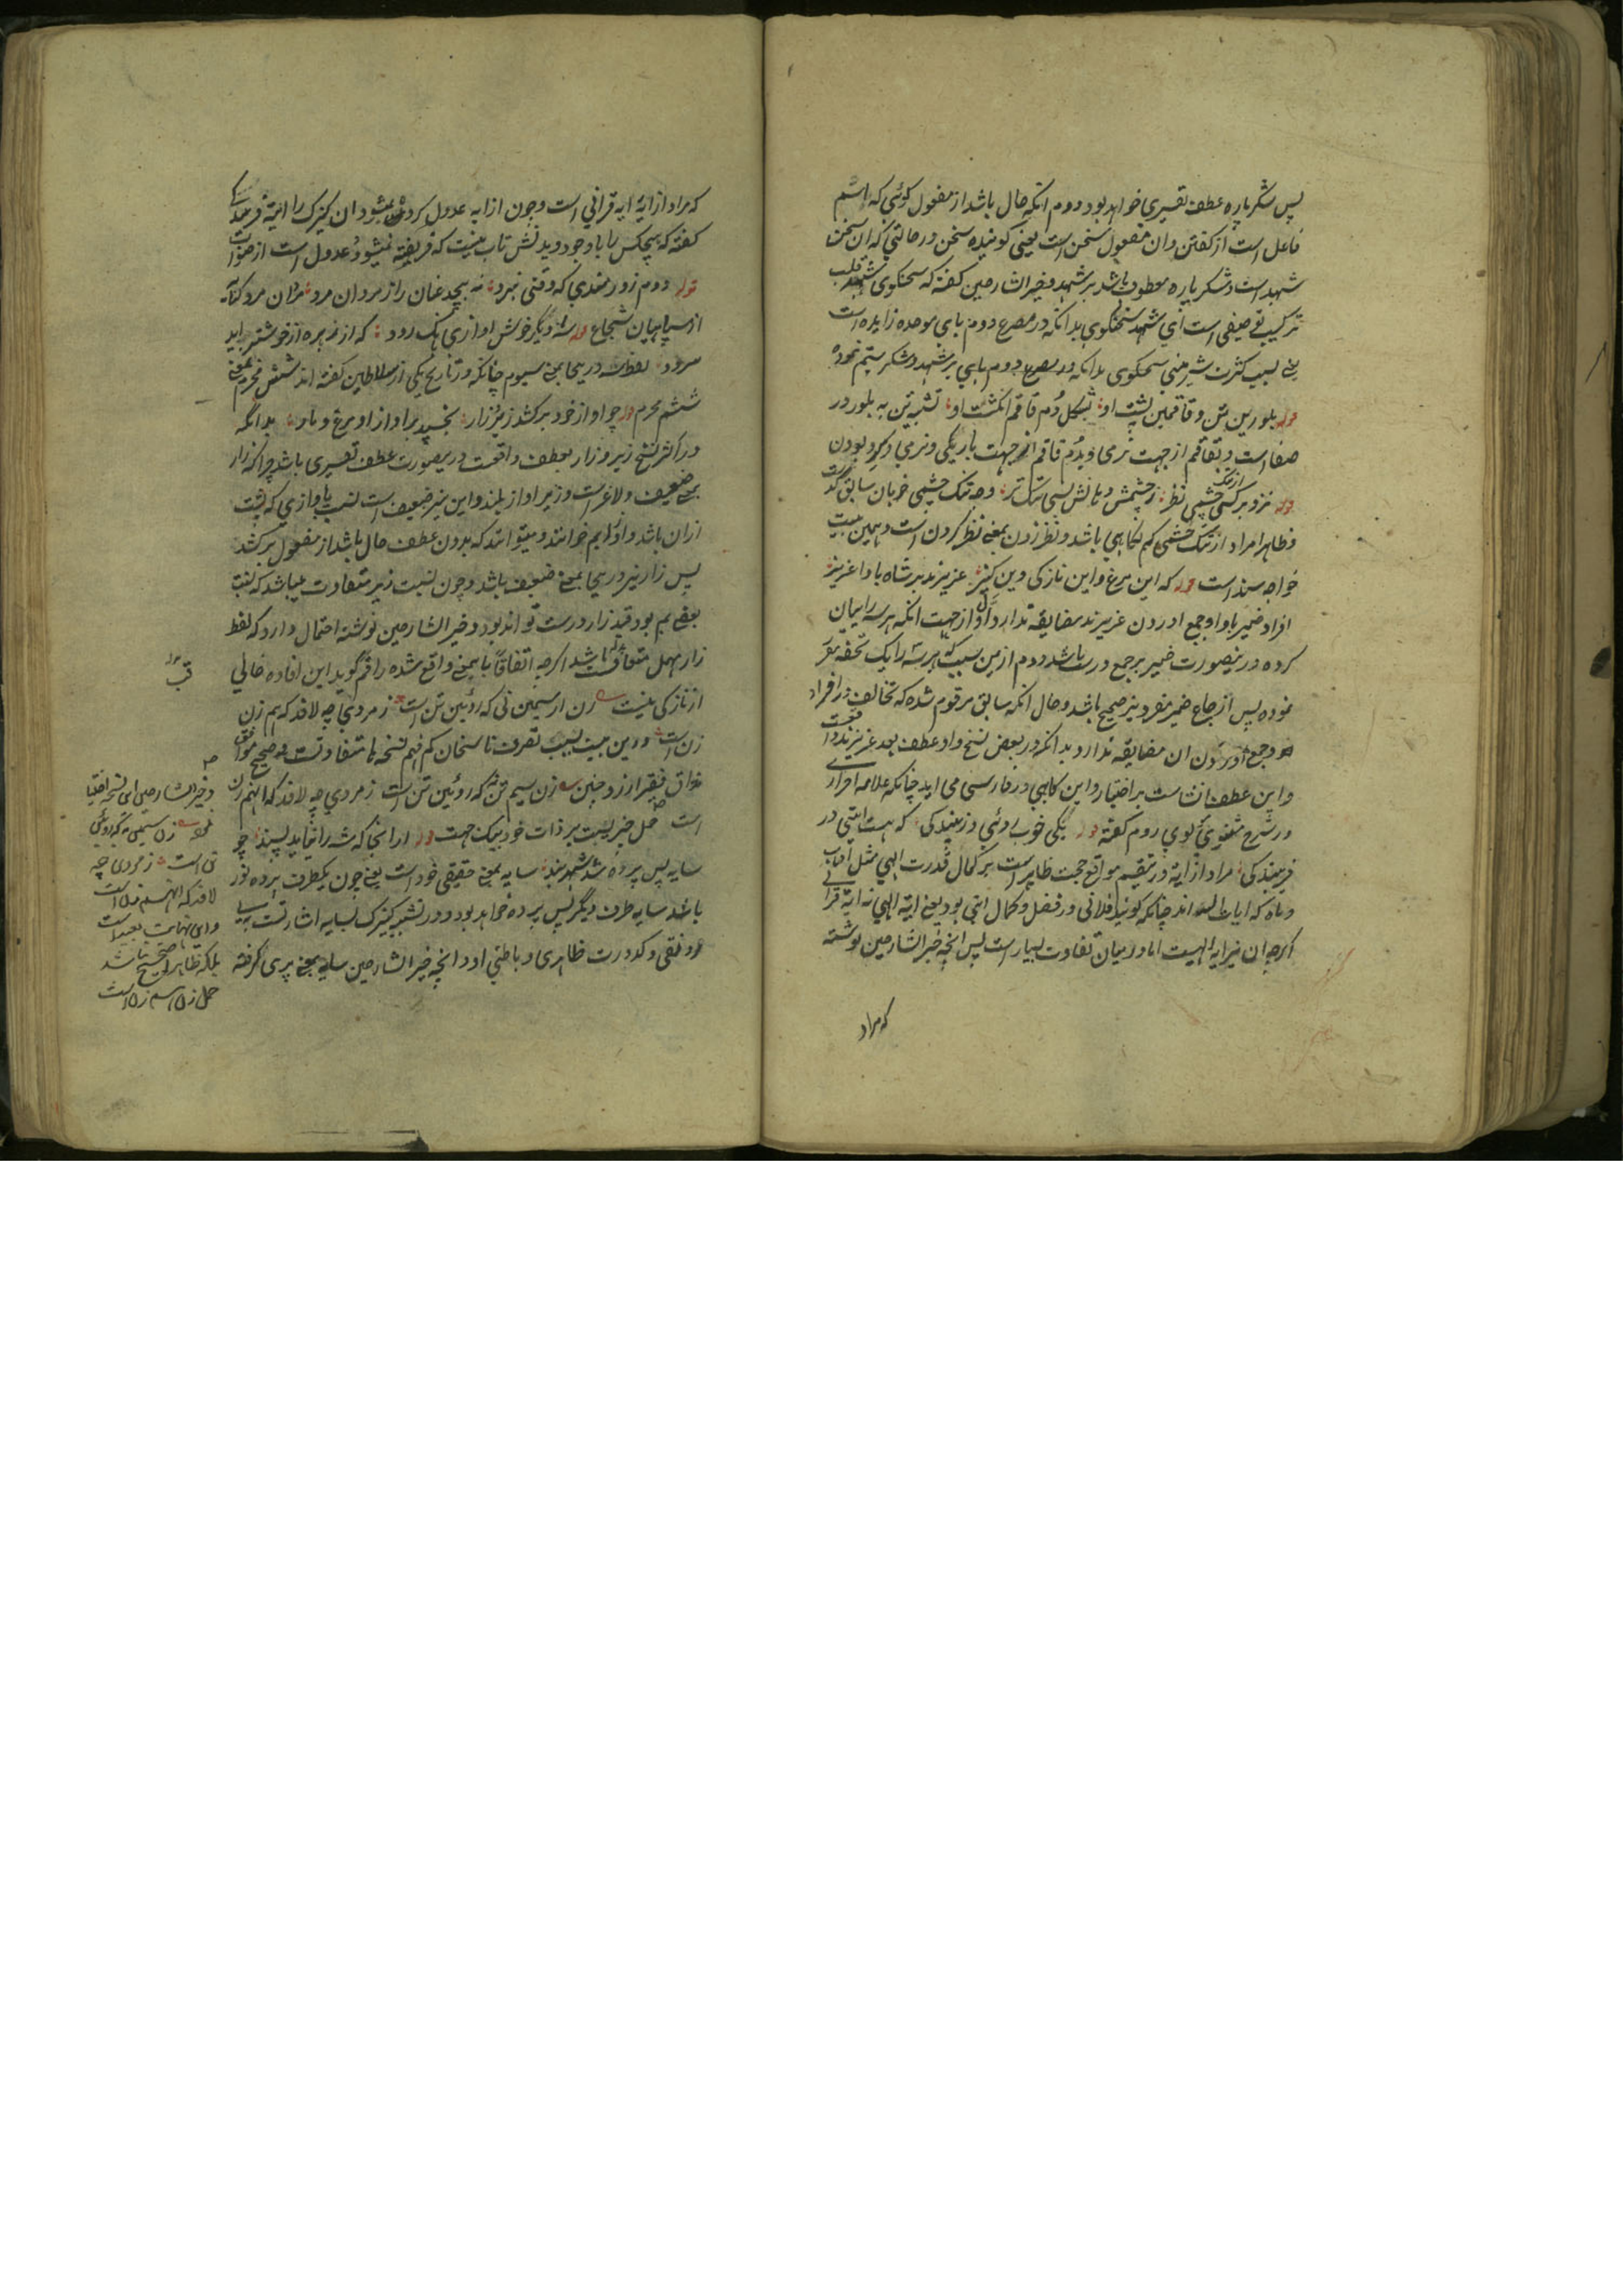 پس شکر باره عطف تفسیری خواهد بود دوم انکه حال باشد از مفعول کوئی که اسم
فاعل است از کفتن و ان مفعول سخن است یعنی کوینده سخن در حالتی که ان سخن
شهد است و شکر باره معطوف باشد بر شهد و خیر الشارحین کفته که سخنکوی شهد قلب
ترکیب توصیفی است ای شهد سخنکوی بدانکه در مصرع دوم بای موحده زایده است
یعنی بسبب کثرت شیرینی سخنکوی بدانکه در مصرع دوم بر شهد و شکر ستم نموده
قوله بلورین تن و قاقمین پشت او بشکل دم قاقم انکشت او تشبیه تن به بلور در
صفا است و بقاقم از جهت نرمی و بدم قاقم از جهت باریکی و نرمی و کرد بودن
قوله نزد بر کسی از تنک چشمی نظر ز چشمش دهانش بسی تنک تر وجه تنک چشمی خوبان سابق کذشت
و ظاهرا مراد از تنک چشمی کم نکاهی باشد و نظر زدن بمعنی نظر کردن است و همین بیت
خواجه سند است قوله که این مرغ و این نازکی وین کنیز عزیزند بر شاه بادا عزیز
افراد ضمیر بادا و جمع اوردن عزیزند مضایقه ندارد اول از جهت انکه هر سه را بیان
کرده درینصورت ضمیر جمع درست باشد دوم ازین سبب که هر سه را یک تحفه مقرر
نموده پس ارجاع ضمیر مفرد نیز صحیح باشد و حال انکه سابق مرقوم شده که تخالف در افراد
و جمع اوردن ان مضایقه ندارد بدانکه در بعض نسخ واو عطف بعد عزیزند واقعست
و این عطف انشاست بر اخبار و این کاهی در فارسی می اید چنانکه علامه احراری
در شرح مثنوی مولوی روم کفته قوله یکی خوب روئی و زیبندکی که هست ایتی در
فریبندکی مراد از ایة در تقسیم مواقع حجت ظاهر است بر کمال قدرت الهی مثل افتاب
و ماه که ایات الله اند چنانکه کویند فلانی در فضل و کمال ایتی بود یعنی ایة الهی نه ایة قرانی
اکرچه ان نیز ایة الهیست اما در میان تفاوت بسیار است پس انچه خیر الشارحین نوشته
که مراد
که مراد از ایة ایه قرانی است و چون از ایه عدول کرده نمیشود ان کنیزک را ایة فریبندکی
کفته که هیچکس را با وجود دیدنش تاب نیست که فریفته نمیشود عدول است از صواب
قوله دوم زورمندی که وقتی نبرد نه پیچد عنان را ز مردان مرد مردان مرد کنایه
از سپاهیان شجاع قوله سه دیکر خوش اوازی بانک رود که از زهره از خوشتر اید
سرود لفظ سه درینجا بمعنی سیوم چنانکه در تاریخ یکی از سلاطین کفته اند شش محرم بمعنی
ششم محرم قوله چو اواز خود برکشد زیر زار بخسپد بر اواز او مرغ و مار بدانکه
در اکثر نسخ زیر و زار بعطف واقعست درینصورت عطف تفسیری باشد چرا که زار
بمعنی ضعیف و لاغر است و زیر اواز بلند و این نیز ضعیف است نسبت باوازی که پشت
ازان باشد و او را بم خوانند و میتواند که بدون عطف حال باشد از مفعول برکشد
پس زار نیز درینجا بمعنی ضعیف باشد و چون نسبت زیر متفاوت میباشد که نسبت
بعض بم بود قید زار درست تواند بود و خیر الشارحین نوشته احتمال دارد که لفظ
زار مهمل متعاقب باشد اکرچه اتفاقا بایمعنی واقع شده راقم کوید این افاده خالی
از نازکی نیست زن ار سیمین تنی که روئین تن است ز مردی چه لافد که هم زن
زن است و درین بیت بسبب تصرف ناسخان کم فهم نسخه ها متفاوتست و صحیح موافق
مذاق فقیر ازو چنین زن سیم تن نه که روئین تن است ز مردی چه لافد که انهم زن
است حمل خبریست بر ذات خود بیک جهت قوله ار انجا که شه را نیاید پسند چو
سایه پس پرده شد شهربند سایه بمعنی حقیقی خود است یعنی چون یکطرف پرده نور
باشد سایه طرف دیکر پس پرده خواهد بود و در تشبیه کنیزک بسایه اشارتست بسیاهی
و کدورت ظاهری و باطنی او و انچه خیر الشارحین سایه بمعنی پری کرفته
و خیر الشارحین این نسخه اختیار
نمود زن سیمین نه که روئین
تن است ز مردی چه
لافد که انهم زن است
و این نهایت بعید است
بلکه ظاهرا صحیح نباشد
حمل زن اسم زن است